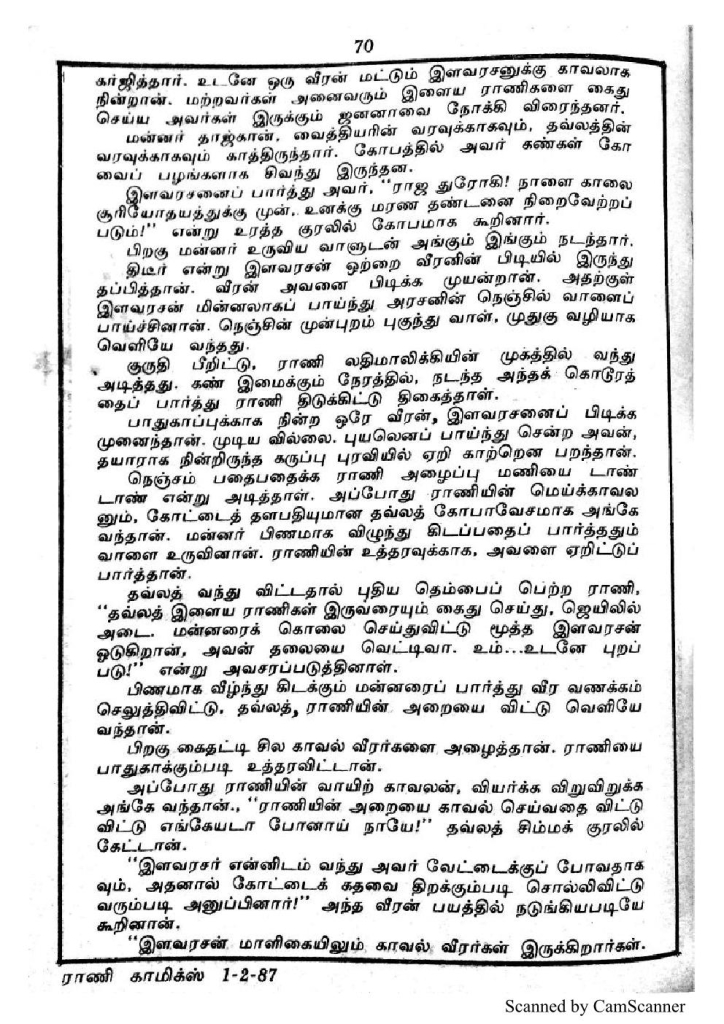 70
கர்ஜித்தார். உடனே ஒரு வீரன் மட்டும் இளவரசனுக்கு காவலாக
நின்றான். மற்றவர்கள் அனைவரும் இளைய ராணிகளை கைது
செய்ய அவர்கள் இருக்கும் ஜனனாவை நோக்கி விரைந்தனர்.
மன்னர் தாஜ்கான், வைத்தியரின் வரவுக்காகவும், தவ்லத்தின்
வரவுக்காகவும் காத்திருந்தார். கோபத்தில் அவர் கண்கள் கோ
வைப் பழங்களாக சிவந்து இருந்தன.
இளவரசனைப் பார்த்து அவர், "ராஜ துரோகி! நாளை காலை
சூரியோதயத்துக்கு முன், உனக்கு மரண தண்டனை நிறைவேற்றப்
படும்!" என்று உரத்த குரலில் கோபமாக கூறினார்.
பிறகு மன்னர் உருவிய வாளுடன் அங்கும் இங்கும் நடந்தார்.
திடீர் என்று இளவரசன் ஒற்றை வீரனின் பிடியில் இருந்து
தப்பித்தான். வீரன் அவனை பிடிக்க முயன்றான். அதற்குள்
இளவரசன் மின்னலாகப் பாய்ந்து அரசனின் நெஞ்சில் வாளைப்
பாய்ச்சினான். நெஞ்சின் முன்புறம் புகுந்து வாள், முதுகு வழியாக
வெளியே வந்தது.
குருதி பீறிட்டு, ராணி லதிமாலிக்கியின் முகத்தில் வந்து
அடித்தது. கண் இமைக்கும் நேரத்தில், நடந்த அந்தக் கொடூரத்
தைப் பார்த்து ராணி திடுக்கிட்டு திகைத்தாள்.
பாதுகாப்புக்காக நின்ற ஒரே வீரன், இளவரசனைப் பிடிக்க
முனைந்தான். முடிய வில்லை. புயலெனப் பாய்ந்து சென்ற அவன்,
தயாராக நின்றிருந்த கருப்பு புரவியில் ஏறி காற்றென பறந்தான்.
நெஞ்சம் பதைபதைக்க ராணி அழைப்பு மணியை டாண்
டாண் என்று அடித்தாள். அப்போது ராணியின் மெய்க்காவல
னும், கோட்டைத் தளபதியுமான தவ்லத் கோபாவேசமாக அங்கே
வந்தான். மன்னர் பிணமாக விழுந்து கிடப்பதைப் பார்த்ததும்
வாளை உருவினான். ராணியின் உத்தரவுக்காக, அவளை ஏறிட்டுப்
பார்த்தான்.
தவ்லத் வந்து விட்டதால் புதிய தெம்பைப் பெற்ற ராணி,
"தவ்லத் இளைய ராணிகள் இருவரையும் கைது செய்து, ஜெயிலில்
அடை. மன்னரைக் கொலை செய்துவிட்டு மூத்த இளவரசன்
ஓடுகிறான், அவன் தலையை வெட்டிவா. உம்...உடனே புறப்
படு!" என்று அவசரப்படுத்தினாள்.
பிணமாக வீழ்ந்து கிடக்கும் மன்னரைப் பார்த்து வீர வணக்கம்
செலுத்திவிட்டு, தவ்லத், ராணியின் அறையை விட்டு வெளியே
வந்தான்.
பிறகு கைதட்டி சில காவல் வீரர்களை அழைத்தான். ராணியை
பாதுகாக்கும்படி உத்தரவிட்டான்.
அப்போது ராணியின் வாயிற் காவலன், வியர்க்க விறுவிறுக்க
அங்கே வந்தான்., "ராணியின் அறையை காவல் செய்வதை விட்டு
விட்டு எங்கேயடா போனாய் நாயே!" தவ்லத் சிம்மக் குரலில்
கேட்டான்.
"இளவரசர் என்னிடம் வந்து அவர் வேட்டைக்குப் போவதாக
வும், அதனால் கோட்டைக் கதவை திறக்கும்படி சொல்லிவிட்டு
வரும்படி அனுப்பினார்!" அந்த வீரன் பயத்தில் நடுங்கியபடியே
கூறினான்.
"இளவரசன் மாளிகையிலும் காவல் வீரர்கள் இருக்கிறார்கள்.
ராணி காமிக்ஸ் 1-2-87
Scanned by CamScanner